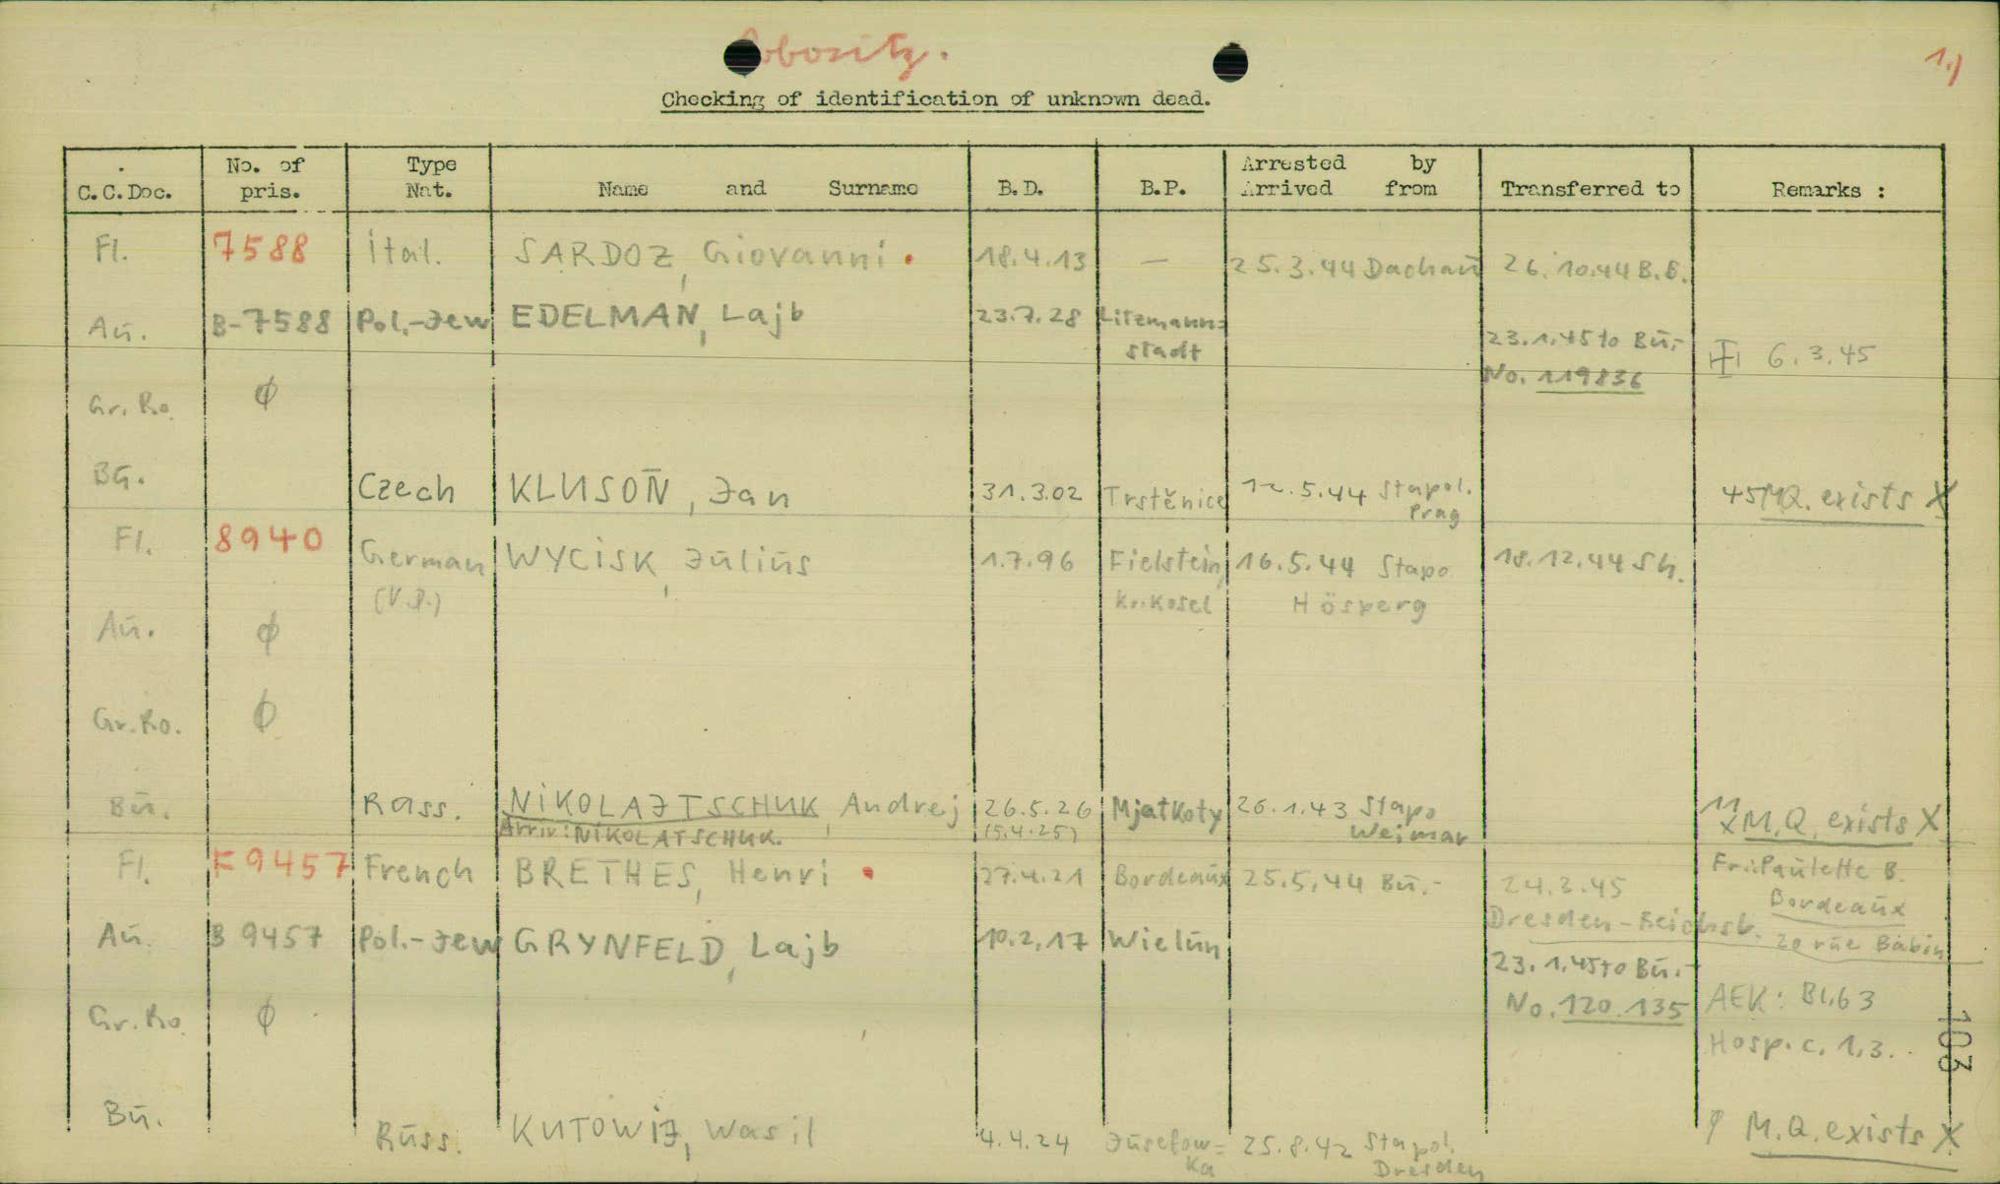 obositz.
1.)
Checking of identification of unknown dead.
C.C.Doc. No. of pris. Type Nat. Name and Surname B.D. B.P. Arrested by Arrived from Transferred to Remarks :
Fl. 7588 ital. SARDOZ, Giovanni 18.4.13 — 25.3.44 Dachau 26.10.44 B.B.
Au. B-7588 Pol.-Jew EDELMAN, Lajb 23.7.28 Litzmann=
stadt 23.1.45 to Bu.-
No. 119836 6.3.45
Gr. Ro. ϕ
BG. Czech KLUSOŇ, Jan 31.3.02 Trstěnice 12.5.44 Stapol.
Prag 45 M.Q. exists X
Fl. 8940 German WYCISK, Julius 1.7.96 Fielstein, 16.5.44 Stapo 18.12.44 Sh.
(V.P.) kr. Kosel Hösperg
Au. ϕ
Gr. Ro. ϕ
Bu. Russ. NIKOLAJTSCHUK, Andrej 26.5.26 Mjatkoty 26.1.43 Stapo M.Q. exists X
Arriv: NIKOLATSCHUK. (5.4.25) Weimar
Fl. F 9457 French BRETHES, Henri 27.4.21 Bordeaux 25.5.44 Bu.- 24.3.45 Fr: Paulette B.
Dresden-Reichsb. Bordeaux
20 rue Babin
Au. B 9457 Pol.-Jew GRYNFELD, Lajb 10.2.17 Wielun 23.1.45 to Bu.-
No. 120.135 AEK: Bl. 63
Gr. Ro. ϕ Hosp. c. 1.3.
103
Bu. Russ. KUTOWIJ, Wasil 4.4.24 Juselow=
ka 25.8.42 Stapol.
Dresden M.Q. exists X